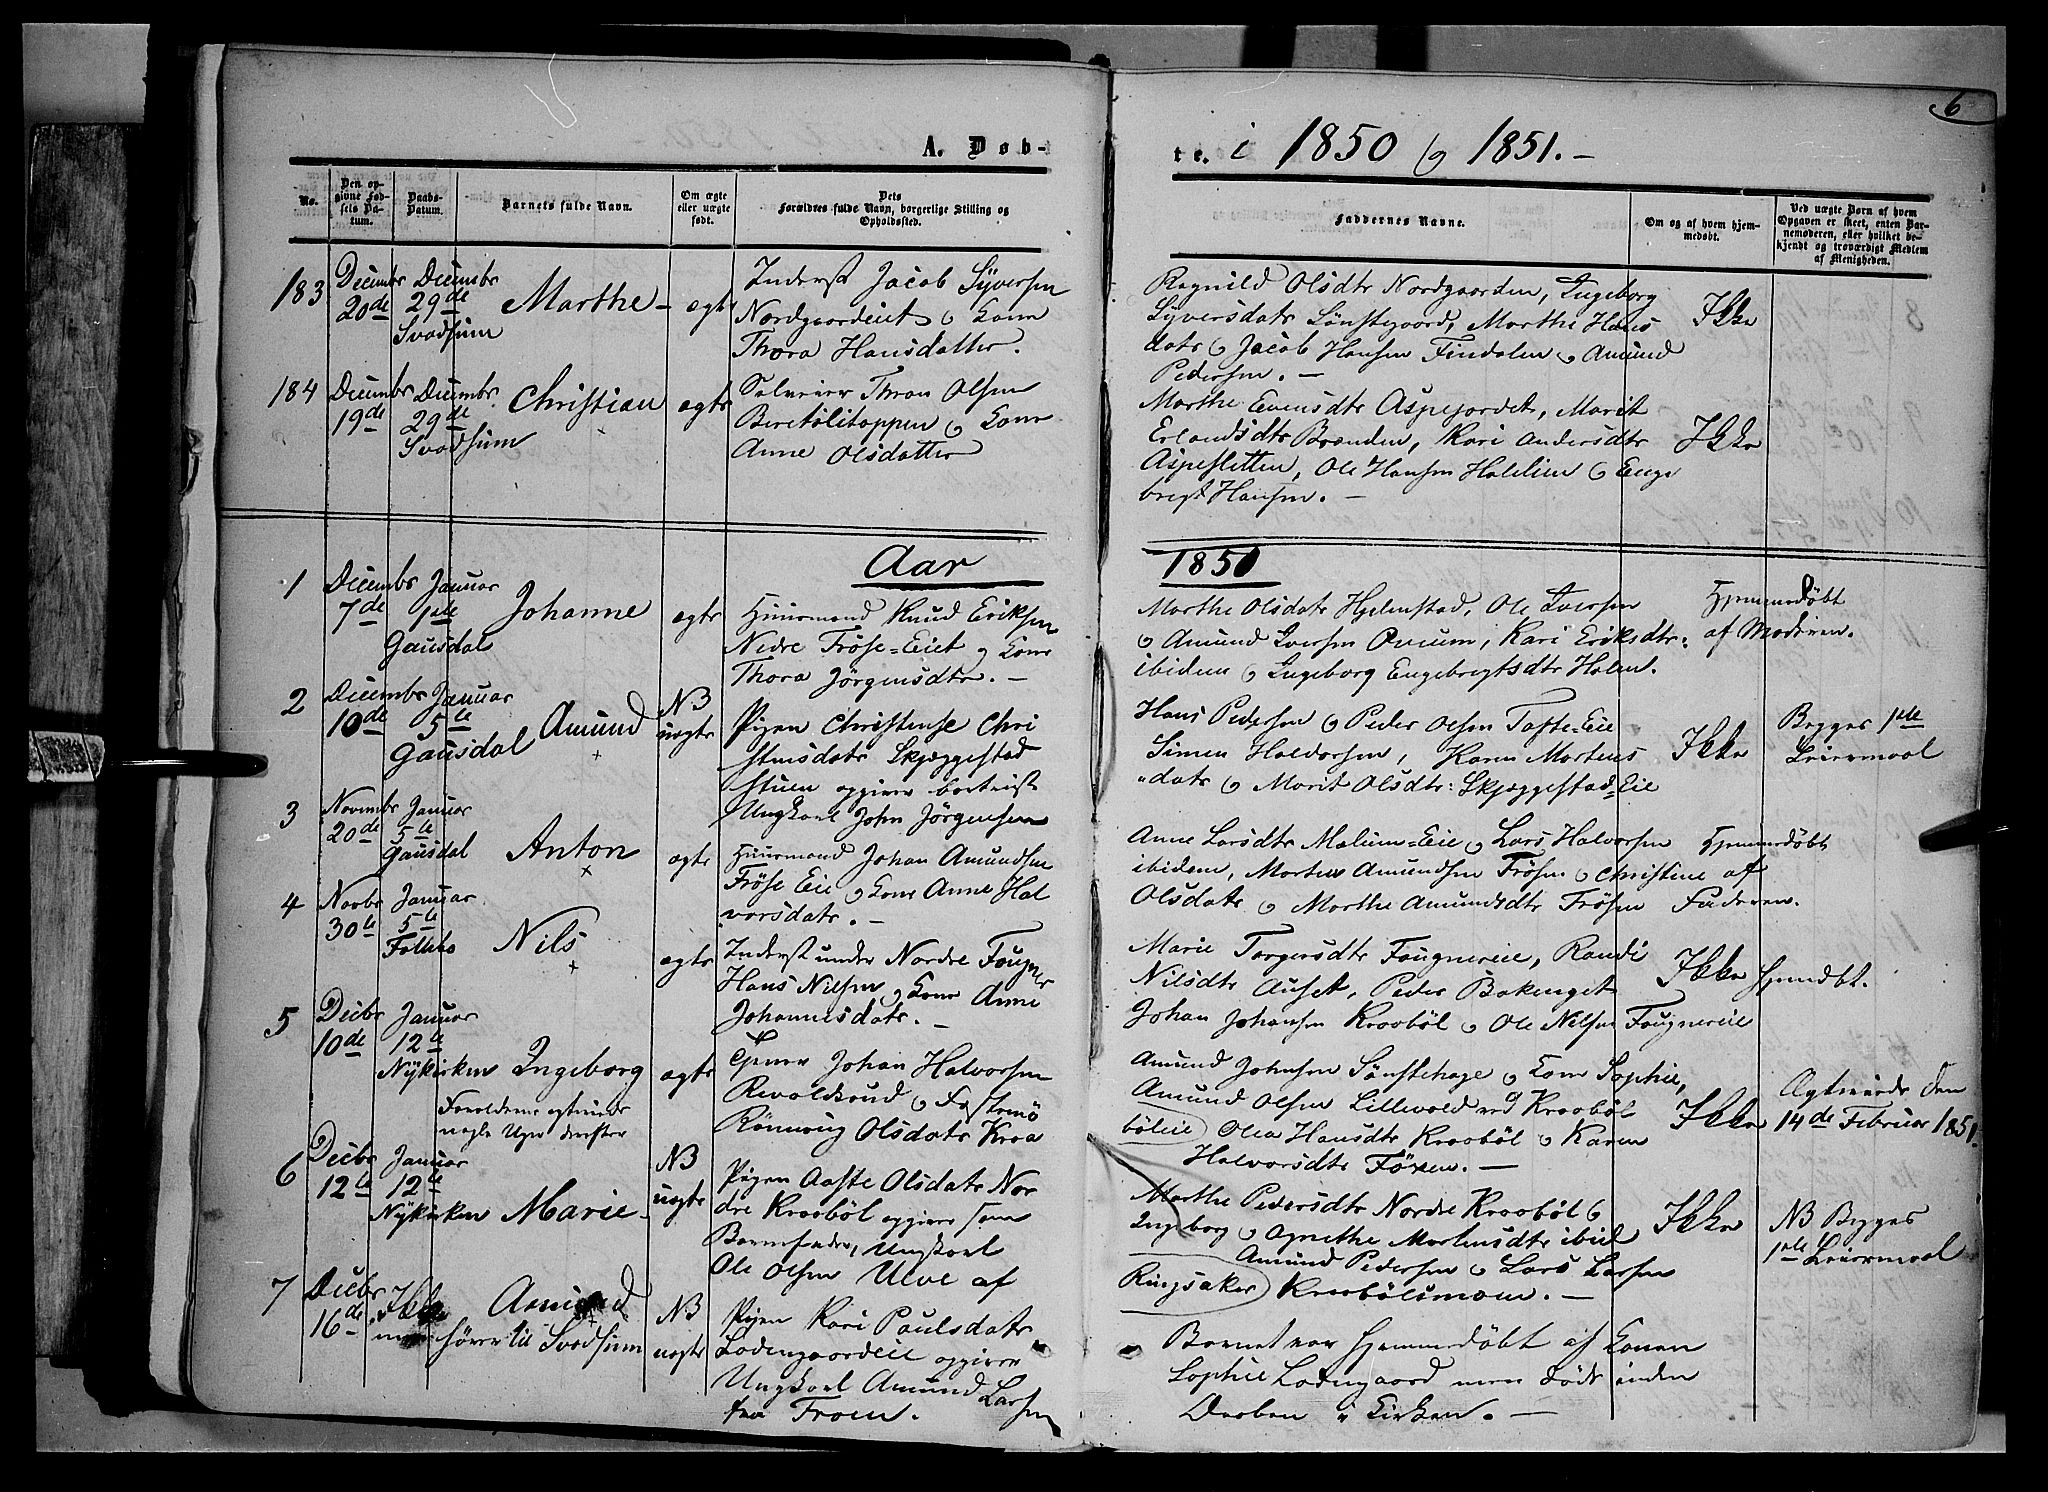 6
A. Døb-
te. i 1850 og 1851. -
No.
Den op-
givne Fød-
sels Da-
tum.
Daabs-
Datum.
Barnets fulde Navn.
Om ægte
eller uægte
født.
Dets
Forældres fulde Navn, borgerlige Stilling og
Opholdssted.
Faddernes Navne.
Om og af hvem hjem-
medøbt.
Ved uægte Børn af hvem
Opgaven er skeet, enten Bar-
nemoderen, eller hvilket be-
kjendt og troværdigt Medlem
af Menigheden.
183
Decembr
20de
Decembr
29de
Svadsum
Marthe -
ægte
Inderst Jacob Syversen
Nordgaardeiet og Kone
Thora Hansdatter.
Ragnild Olsdtr Nordgaarden, Ingeborg
Syversdatr Sønstegaard, Marthe Hans
datr og Jacob Hansen Findalen og Amund
Pedersen. -
Ikke
184
Decembr
19de
Decembr
29de
Svadsum
Christian
ægte
Selveier Thron Olsen
og Kone
Anne Olsdatter
Marthe Evensdtr Aspejordet, Marit
Erlandsdtr Brænden, Kari Andersdtr
Aspesletten, Ole Hansen og Enge
bregt Hansen. -
Ikke
Aar 1850
1
Decembr
7de
Januar
1ste
Gausdal
Johanne
ægte
Huusmand Knud Eriksen
Nedre Frøse-Eiet og Kone
Thora Jørgensdtr. -
Marthe Olsdatr Hjelmstad, Ole Iversen
og Amund Iversen, Kari Eriksdtr:
ibidem og Ingeborg Engebregtsdtr Holm.
Hjemmedøbt
af Moderen.
2
Decembr
10de
Januar
5te
Gausdal
Amund
NB
uægte
Pigen Christense Chri
stensdatr Skjæggestad
stuen opgiver bortreist
Ungkarl John Jørgensen
Hans Pedersen og Peder Olsen Tofte-Eie
Simen Haldorsen, Karen Mortens
datr og Marit Olsdtr: Skjæggestad-Eie
Ikke
Begges 1ste
Leiermaal
3
Novembr
20de
Januar
5te
Gausdal
Anton
ægte
Huusmand Johan Amundsen
Frøse Eie og Kone Anne Hal
vorsdatr. -
Anne Larsdtr Malum-Eie og Lars Halvorsen
ibidem, Morten Amundsen Frøsen og Christine
Olsdatr og Marthe Amundsdtr Frøsen
Hjemmedøbt
af
Faderen.
4
Novbr
30te
Januar
5te
Follebo
Nils
ægte
Inderst under Nordre Fougner
Hans Nilsen og Kone Anne
Johannesdatr. -
Marie Torgersdtr Fougnereie, Randi
Nilsdtr Auset, Peder Bakenget
Johan Johansen Kraabøl og Ole Nilsen Fougnereie
Ikke Hjemdbt.
5
Decbr
10de
Januar
12te
Nykirken
Ingeborg
Forældrene ægteviede
nogle Uger derefter
ægte
Tjener Johan Halvorsen
og Fæstemø
Rønnoug Olsdatr Kraa
bøleie
Amund Johnsen Sønstehage og Kone Sophie,
Amund Olsen Lillevold ved Kraabøl
Olea Hansdtr Kraabøl og Karen
Halvorsdtr. -
Ikke
Ægteviede den
14de Februar 1851.
6
Decbr
12te
Januar
12te
Nykirken
Marie -
NB
uægte
Pigen Aaste Olsdatr Nor
dre Kraabøl opgiver som
Barnefader, Ungkarl
Ole Olsen Ulve af
Ringsaker
Marthe Pedersdtr Nordre Kraabøl og
Ingeborg og Agnethe Mortensdtr ibid
Amund Pedersen og Lars Larsen
Kraabølsmoen. -
Ikke
NB Begges
1ste Leiermaal
7
Decbr
16de
Ikke
hører til Svadsum
Amund
NB
uægte
Pigen Kari Paulsdatr
Lodengaardeie opgiver
Ungkarl Amund Larsen
fra Froen.
Barnet var Hjemmedøbt af Konen
Sophie Lodengaard men døde inden
Daaben i Kirken. -